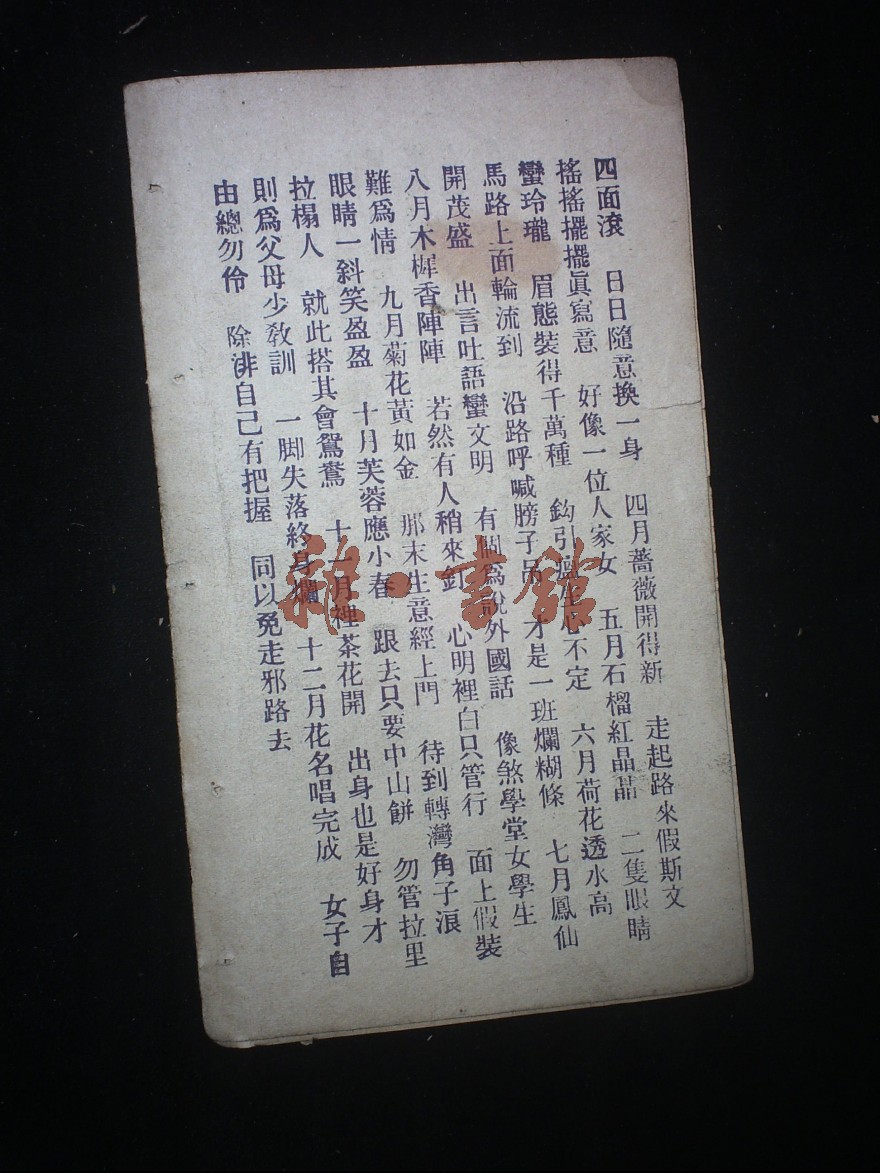 四面滾　日日隨意換一身　四月薔薇開得新　走起路來假斯文
搖搖擺擺眞寫意　好像一位人家女　五月石榴紅晶晶　二隻眼睛
蠻玲瓏　眉態裝得千萬種　鈎引瘟生心不定　六月荷花透水高
馬路上面輪流到　沿路呼喊膀子吊　才是一班爛糊條　七月鳳仙
開茂盛　出言吐語蠻文明　有個爲說外國話　像煞學堂女學生
八月木樨香陣陣　若然有人稍來釘　心明裡白只管行　面上假裝
難爲情　九月菊花黃如金　那末生意經上門　待到轉灣角子浪
眼睛一斜笑盈盈　十月芙蓉應小春　跟去只要中山餅　勿管拉里
拉榻人　就此搭其會鴛鴦　十一月裡茶花開　出身也是好身才
則爲父母少敎訓　一脚失落終身爛　十二月花名唱完成　女子自
由總勿伶　除非自己有把握　同以免走邪路去
雜·書館